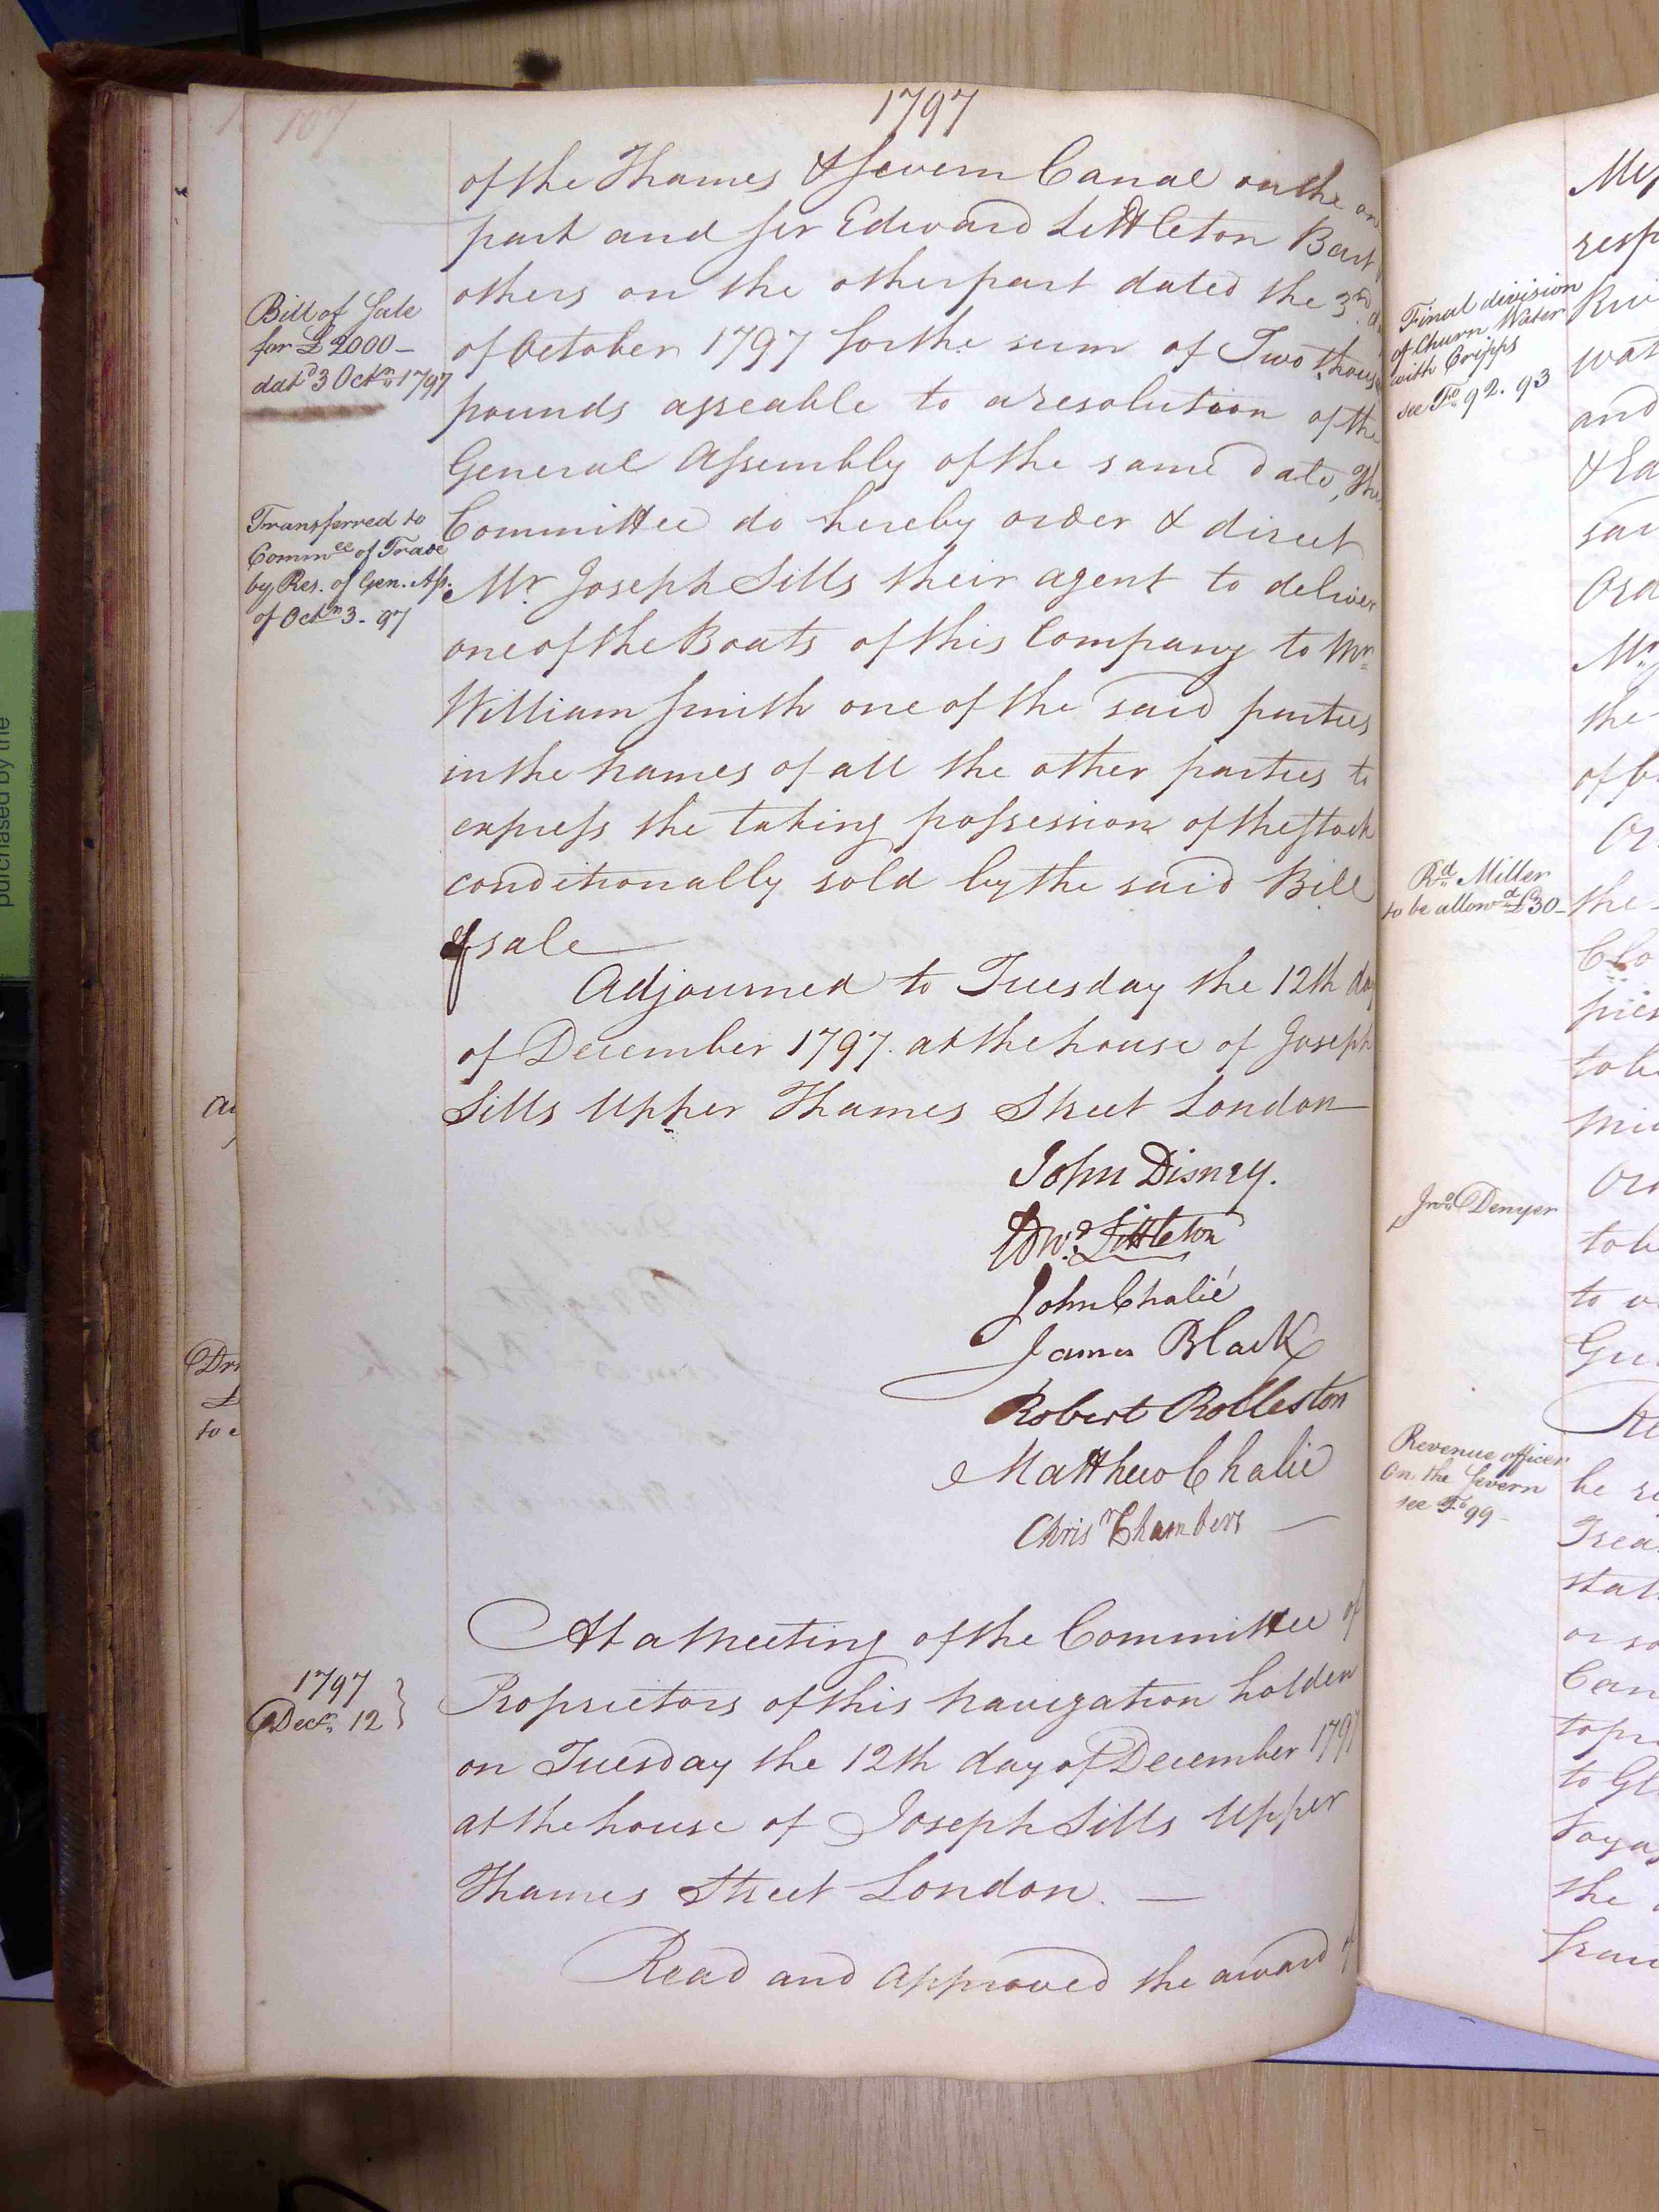 107
1797
of the Thames & Severn Canal on the one
part and Sir Edward Littleton Bart
others on the other part dated the 3rd
Bill of Sale
for £2000 –
datd 3 Octr 1797
of October 1797 for the sum of Two thous
pounds agreable to a resolution of the
General Assembly of the same date, The
Transferred to
Commee of Trade
by Res. of Gen. Ass.
of Octr 3 - 97
Committee do hereby order & direct
Mr Joseph Sills their agent to deliver
one of the Boats of this Company to Mr
William Smith one of the said parties
in the names of all the other parties to
express the taking possession of the stock
conditionally sold by the said Bill
of sale
Adjourned to Tuesday the 12th day
of December 1797. at the house of Joseph
Sills Upper Thames Street London
John Disney.
Edwd. Littleton
John Chalié
James Black
Robert Rolleston
Matthew Chalié
Chrisr Chambers
At a Meeting of the Committee of
1797
Decr. 12
Proprietors of this navigation holden
on Tuesday the 12th day of December 1797
at the house of Joseph Sills Upper
Thames Street London. —
Read and approved the award of
Final division
of Churn Water
with Cripps
see Fo 92. 93
Rd Miller
to be allowd £30 –
Jno Denyer
Revenue officer
on the Severn
see Fo 99 –